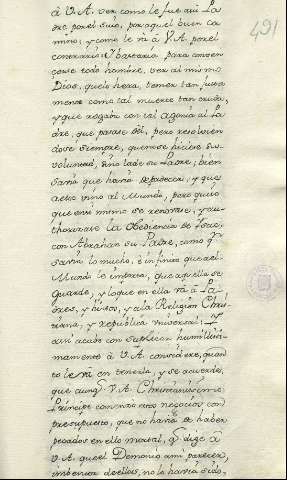 491
à V. A. ver como le fue así Pa
dre por el suio, por aquel buen ca
mino, y como le và à V. A. por el
contrario: Y bastaría para conven
cerse todo hombre, ver al mismo
Dios, que lo hera, temer tan
mente como tal muerte tan cruda,
y que rogaba con tal agonía al Pa
dre, que pasase del, pero resolvien
dose siempre, que no se hiciese su
voluntad, sino la de su Padre, bien
savia que havia de padecer, y que
a esto vino al Mundo, pero quiso
que en si mismo se renovase, y
la obediencia de Isac,
con Abrahan su Padre, como qe
savia lo mucho, è infinito que al
Mundo le importa, que aquella se
guarde, y lo que en ella và à Pa
dres, y hijos, y a la Religion Chris
tiana, y república universal: Y
así acudo con suplicar humilde
mente à V. A. considere, quan
to le và en tenerla, y se acuerde,
que aunqe V. A. Christianísimo
Príncipe negocios con
presupuesto, que no havia de haber
pecados en ello mortal, qe dige à
V. A. que el Demonio à mi parecer,
de ellos, no le havia sido,